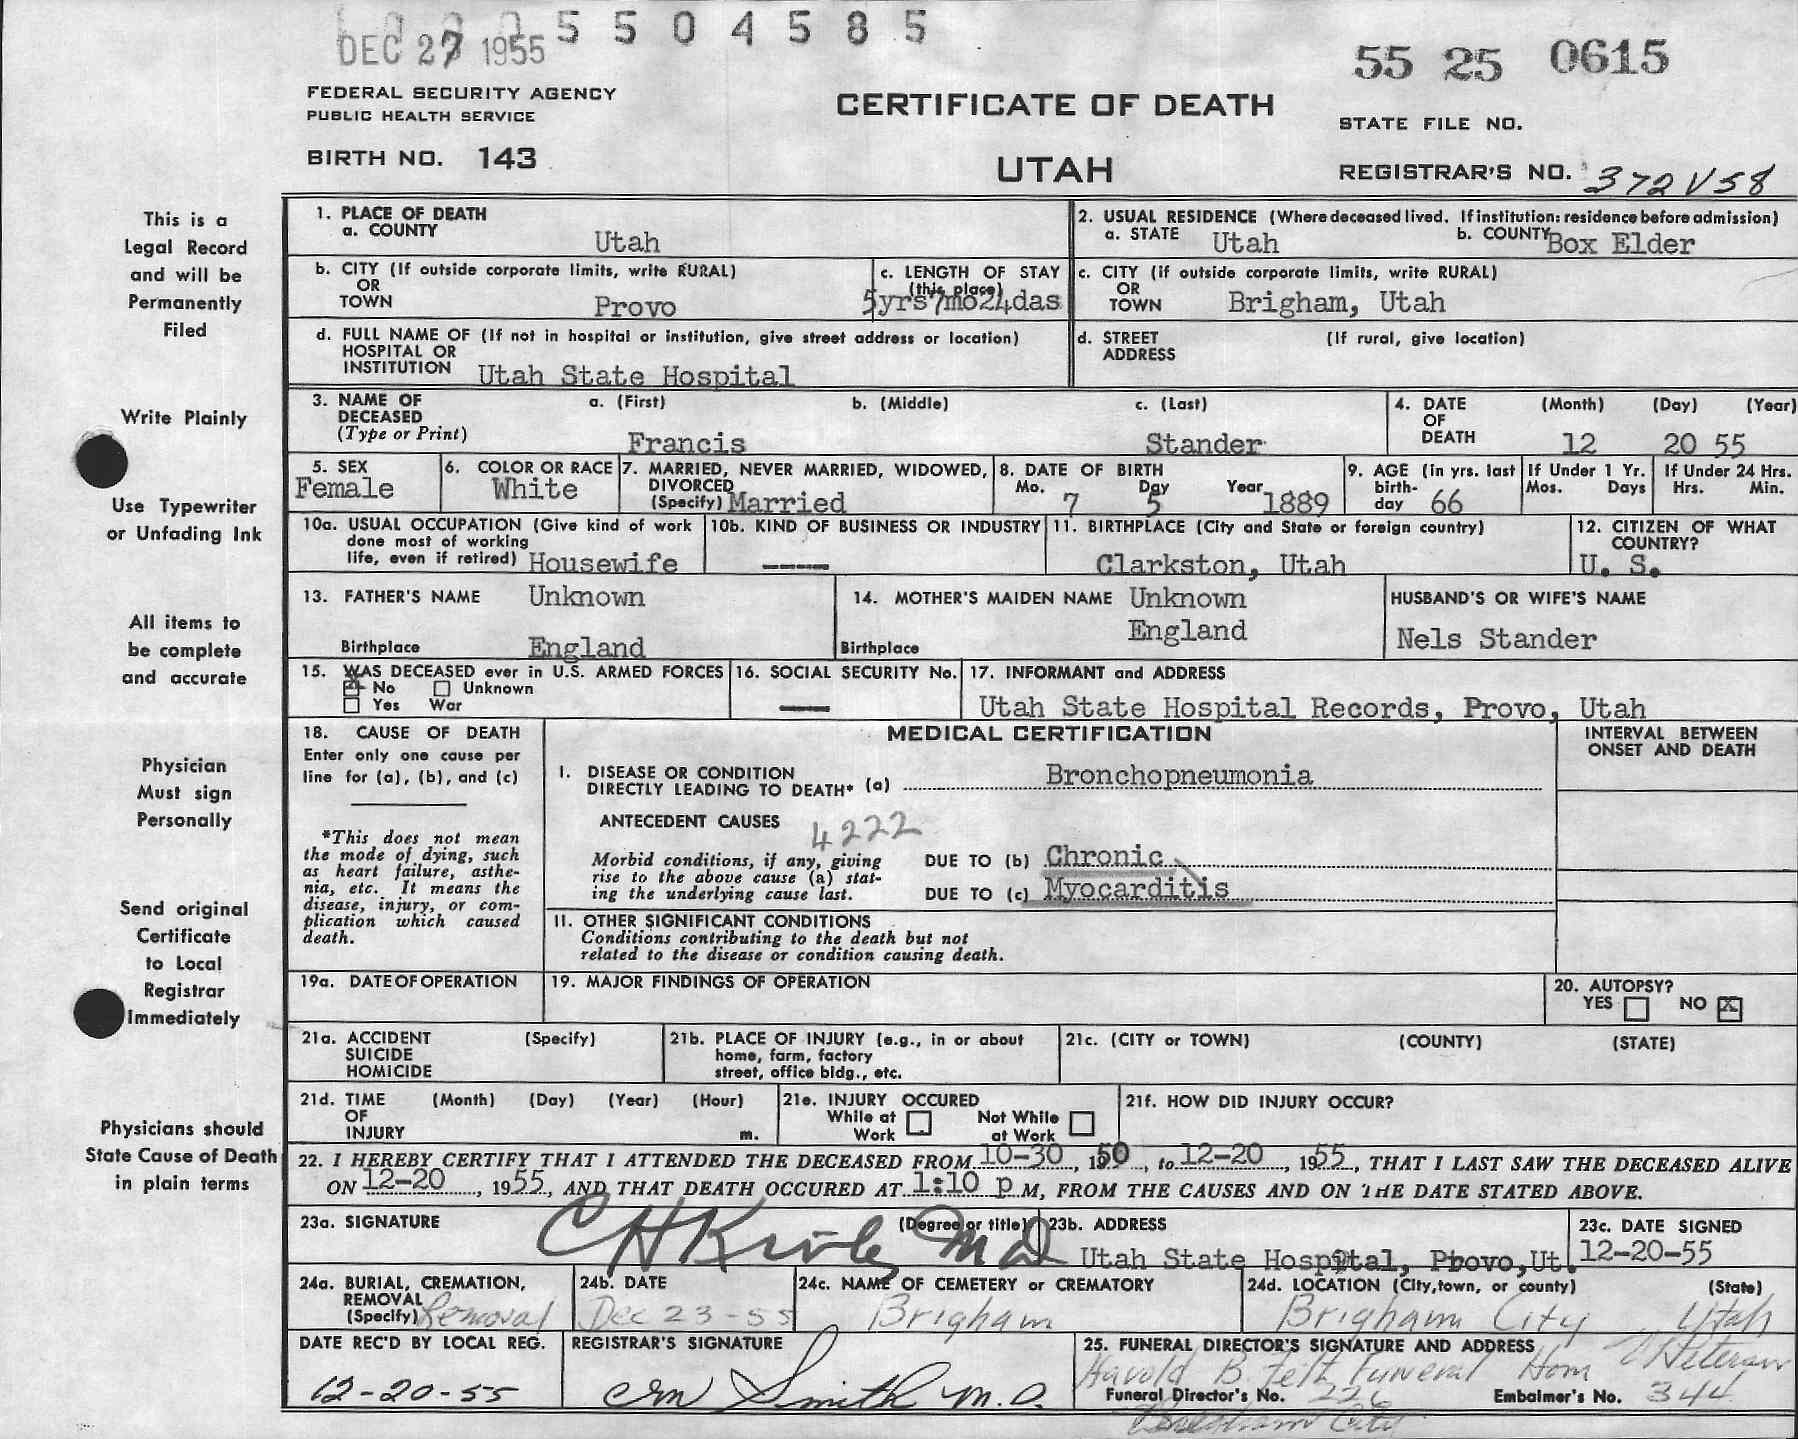 5504585
DEC 27 1955
55 25 0615
FEDERAL SECURITY AGENCY
PUBLIC HEALTH SERVICE
CERTIFICATE OF DEATH
STATE FILE NO.
BIRTH NO. 143
UTAH
REGISTRAR'S NO. 372 V 58
This is a
Legal Record
and will be
Permanently
Filed
Write Plainly
Use Typewriter
or Unfading Ink
All items to
be complete
and accurate
Physician
Must sign
Personally
Send original
Certificate
to Local
Registrar
Immediately
Physicians should
State Cause of Death
in plain terms
1. PLACE OF DEATH
a. COUNTY Utah
2. USUAL RESIDENCE (Where deceased lived. If institution: residence before admission)
a. STATE Utah b. COUNTY Box Elder
b. CITY (If outside corporate limits, write RURAL)
OR
TOWN Provo
c. LENGTH OF STAY
(this place)
5yrs7mo24das
c. CITY (if outside corporate limits, write RURAL)
OR
TOWN Brigham, Utah
d. FULL NAME OF (If not in hospital or institution, give street address or location)
HOSPITAL OR
INSTITUTION Utah State Hospital
d. STREET (If rural, give location)
ADDRESS
3. NAME OF DECEASED (Type or Print)
a. (First) b. (Middle) c. (Last)
Francis Stander
4. DATE OF DEATH (Month) (Day) (Year)
12 20 55
5. SEX
Female
6. COLOR OR RACE
White
7. MARRIED, NEVER MARRIED, WIDOWED,
DIVORCED
(Specify) Married
8. DATE OF BIRTH
Mo. Day Year
7 5 1889
9. AGE (in yrs. last
birth-
day 66
If Under 1 Yr.
Mos. Days
If Under 24 Hrs.
Hrs. Min.
10a. USUAL OCCUPATION (Give kind of work
done most of working
life, even if retired) Housewife
10b. KIND OF BUSINESS OR INDUSTRY
----
11. BIRTHPLACE (City and State or foreign country)
Clarkston, Utah
12. CITIZEN OF WHAT
COUNTRY?
U. S.
13. FATHER'S NAME Unknown
Birthplace England
14. MOTHER'S MAIDEN NAME Unknown
Birthplace England
HUSBAND'S OR WIFE'S NAME
Nels Stander
15. WAS DECEASED ever in U.S. ARMED FORCES
X No Unknown
Yes War
16. SOCIAL SECURITY No.
---
17. INFORMANT and ADDRESS
Utah State Hospital Records, Provo, Utah
18. CAUSE OF DEATH
Enter only one cause per
line for (a), (b), and (c)
*This does not mean
the mode of dying, such
as heart failure, asthe-
nia, etc. It means the
disease, injury, or com-
plication which caused
death.
MEDICAL CERTIFICATION
INTERVAL BETWEEN
ONSET AND DEATH
I. DISEASE OR CONDITION
DIRECTLY LEADING TO DEATH* (a) Bronchopneumonia
ANTECEDENT CAUSES
4222
Morbid conditions, if any, giving
rise to the above cause (a) stat-
ing the underlying cause last.
DUE TO (b) Chronic
DUE TO (c) Myocarditis
II. OTHER SIGNIFICANT CONDITIONS
Conditions contributing to the death but not
related to the disease or condition causing death.
19a. DATE OF OPERATION
19. MAJOR FINDINGS OF OPERATION
20. AUTOPSY?
YES NO X
21a. ACCIDENT (Specify)
SUICIDE
HOMICIDE
21b. PLACE OF INJURY (e.g., in or about
home, farm, factory
street, office bldg., etc.
21c. (CITY or TOWN) (COUNTY) (STATE)
21d. TIME (Month) (Day) (Year) (Hour)
OF
INJURY m.
21e. INJURY OCCURED
While at Work Not While at Work
21f. HOW DID INJURY OCCUR?
22. I HEREBY CERTIFY THAT I ATTENDED THE DECEASED FROM 10-30, 1950, to 12-20, 1955, THAT I LAST SAW THE DECEASED ALIVE
ON 12-20, 1955, AND THAT DEATH OCCURED AT 1:10 p M, FROM THE CAUSES AND ON THE DATE STATED ABOVE.
23a. SIGNATURE (Degree or title)
C H M D
23b. ADDRESS
Utah State Hospital, Provo, Ut.
23c. DATE SIGNED
12-20-55
24a. BURIAL, CREMATION,
REMOVAL
(Specify) Removal
24b. DATE
Dec 23-55
24c. NAME OF CEMETERY or CREMATORY
Brigham
24d. LOCATION (City, town, or county) (State)
Brigham City Utah
DATE REC'D BY LOCAL REG.
12-20-55
REGISTRAR'S SIGNATURE
Smith M.D.
25. FUNERAL DIRECTOR'S SIGNATURE AND ADDRESS
Harold B. Felt Funeral Hom
Funeral Director's No. 226 Embalmer's No. 344
City